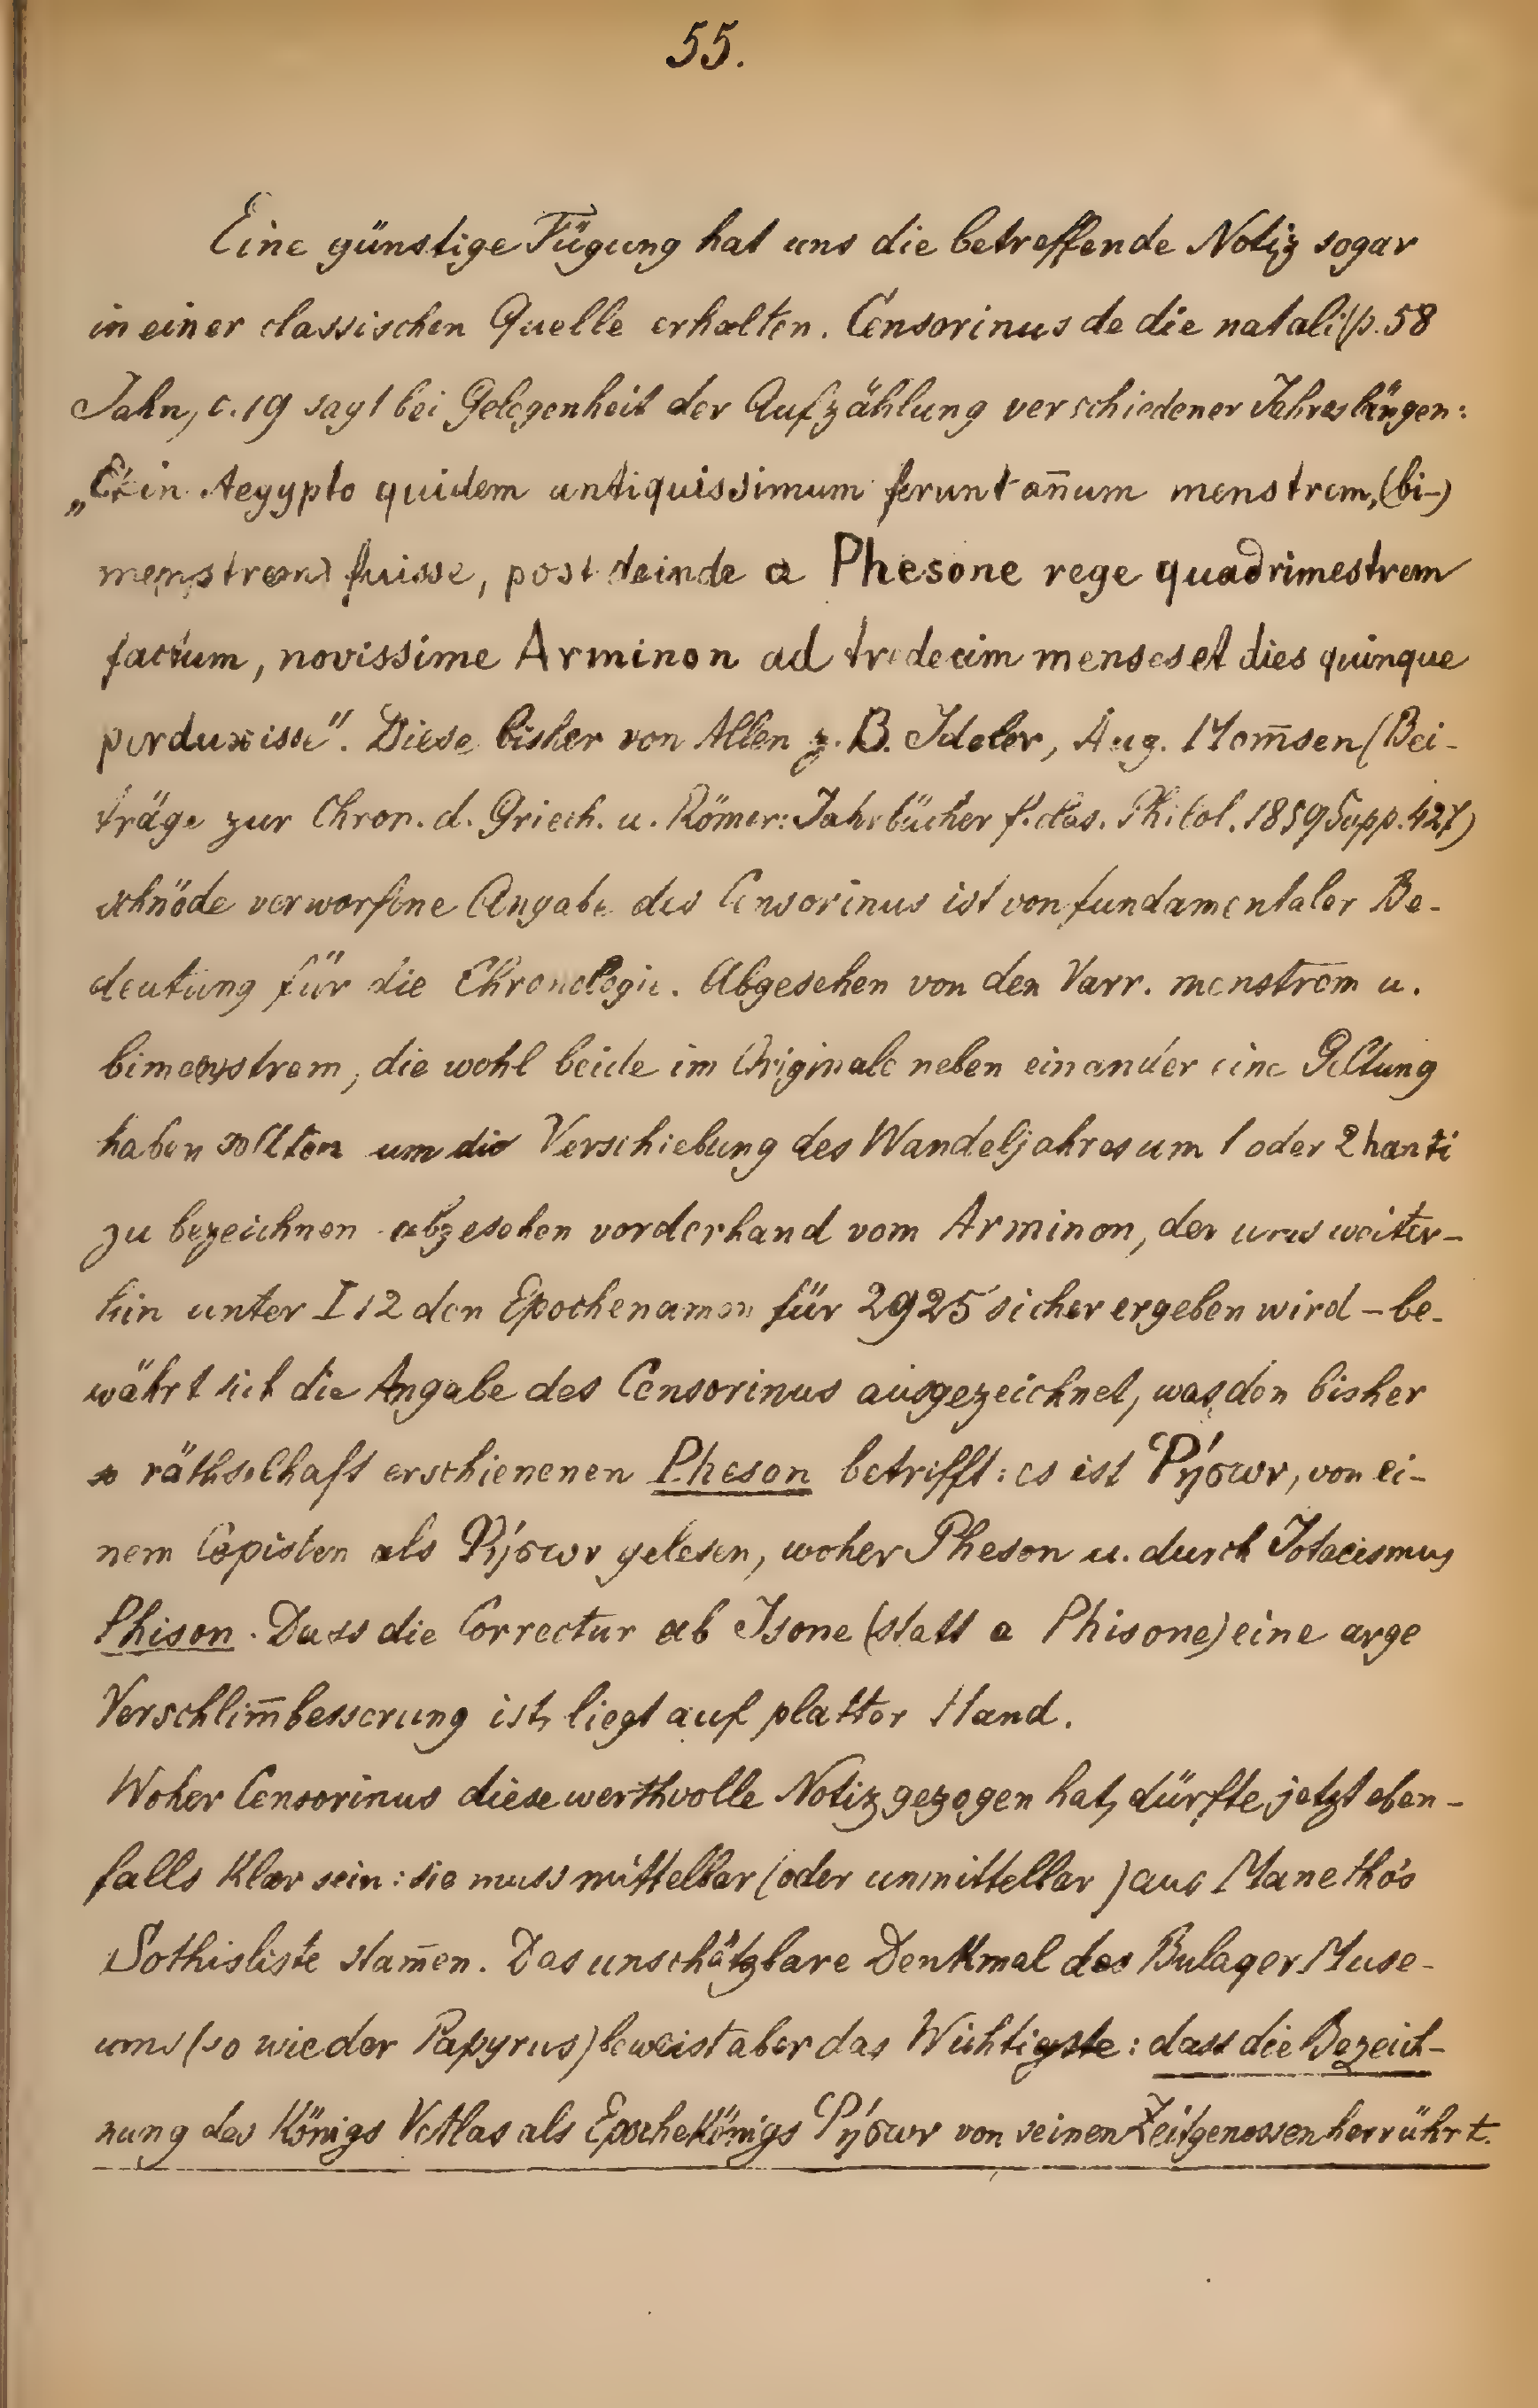 55.
Eine günstige Fügung hat uns die betreffende Notiz sogar
in einer classischen Quelle erhalten. Censorinus de die natali (p. 58
Jahn, c. 19 sagt bei Gelegenheit der Aufzählung verschiedener Jahreslängen:
„Et in Aegypto quidem antiquissimum ferunt an̄um menstrem, (bi-)
menstrem) fuisse, post deinde a Phesone rege quadrimestrem
factum, novissime Arminon ad tredecim menses et dies quinque
perduxisse". Diese bisher von Allen z. B. Ideler, Aug. Mom̄sen (Bei-
träge zur Chron. d. Griech. u. Römer: Jahrbücher f. clas. Philol. 1859 Supp. 427)
schnöde verworfene Angabe des Censorinus ist von fundamentaler Be-
deutung für die Chronologie. Abgesehen von den Varr. menstrem u.
bimenstrem, die wohl beide im Originale neben einander eine Geltung
haben sollten um die Verschiebung des Wandeljahres um 1 oder 2 hanti
zu bezeichnen abgesehen vorderhand vom Arminon, der uns weiter-
hin unter I 12 den Epochenamen für 2925 sicher ergeben wird – be-
währt sich die Angabe des Censorinus ausgezeichnet, was den bisher
so räthselhaft erschienenen Pheson betrifft: es ist Ῥήσων, von ei-
nem Copisten als Φήσων gelesen, woher Pheson u. durch Iotacismus
Phison. Dass die Correctur ab Isone (statt a Phisone) eine arge
Verschlim̄besserung ist, liegt auf platter Hand.
Woher Censorinus diese werthvolle Notiz gezogen hat, dürfte jetzt eben-
falls klar sein: sie muss mittelbar (oder unmittelbar) aus Manethó's
Sothisliste stam̄en. Das unschätzbare Denkmal des Bulaqer Muse-
ums (so wie der Papyrus) beweist aber das Wichtigste: dass die Bezeich-
nung des Königs Vetlas als Epochekönigs Ῥήσων von seinen Zeitgenossen herrührt.